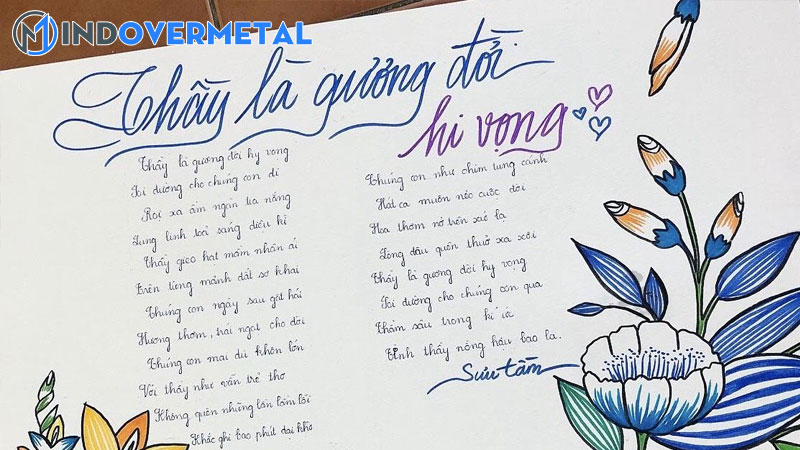 MINDOVERMETAL
Thầy là gương đời
hi vọng
Thầy là gương đời hy vọng
Soi đường cho chúng con đi
Rọi xa ấm ngàn tia nắng
Lung linh toả sáng diệu kì
Thầy gieo hạt mầm nhân ái
Trên từng mảnh đất sơ khai
Chúng con ngày sau gặt hái
Hương thơm, trái ngọt cho đời
Chúng con mai dù khôn lớn
Với thầy như vẫn trẻ thơ
Không quên những lần lầm lỗi
Khắc ghi bao phút dại khờ
Chúng con như chim tung cánh
Hát ca muôn nẻo cuộc đời
Hoa thơm nở trên xứ lạ
Lòng đâu quên thuở xa xôi
Thầy là gương đời hy vọng
Soi đường cho chúng con qua
Thẳm sâu trong kí ức
Tình thầy nồng hậu bao la.
Sưu tầm